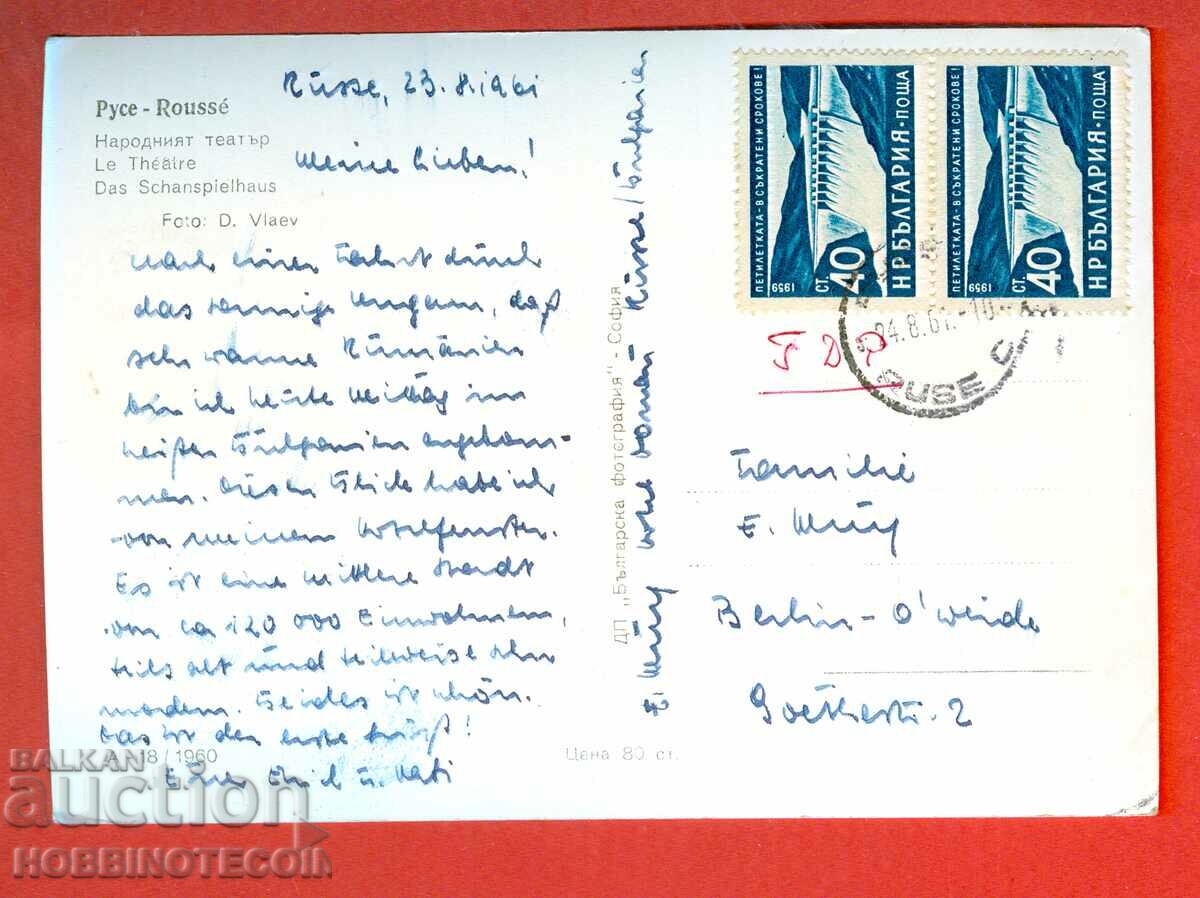 Русе - Roussé
Народният театър
Le Théâtre
Das Schanspielhaus
Foto: D. Vlaev
Russe, 23.8.1961
Meine Lieben!
Nach einer Fahrt durch
das sonnige Ungarn, das
sehr warme Rumänien
bin ich heute Mittag im
heißen Bulgarien angekom-
men. Diesen Blick habe ich
von meinem Hotelfenster.
Es ist eine mittlere Stadt
von ca 120 000 Einwohnern,
teils alt und teilweise sehr
modern. Beides ist schön.
Das ist der erste Gruß!
Euer Emil
A 18 / 1960
Цена 80 ст.
ДП „Българска фотография" - София
Russe / Bulgarien
ПЕТИЛЕТКАТА-В СЪКРАТЕНИ СРОКОВЕ!
НР БЪЛГАРИЯ·ПОЩА
СТ. 40
1959
ПЕТИЛЕТКАТА-В СЪКРАТЕНИ СРОКОВЕ!
НР БЪЛГАРИЯ·ПОЩА
СТ. 40
1959
24.8.61.-10
RUSE
Familie
E.
Berlin-
2
BALKAN
auction
HOBBINOTECON